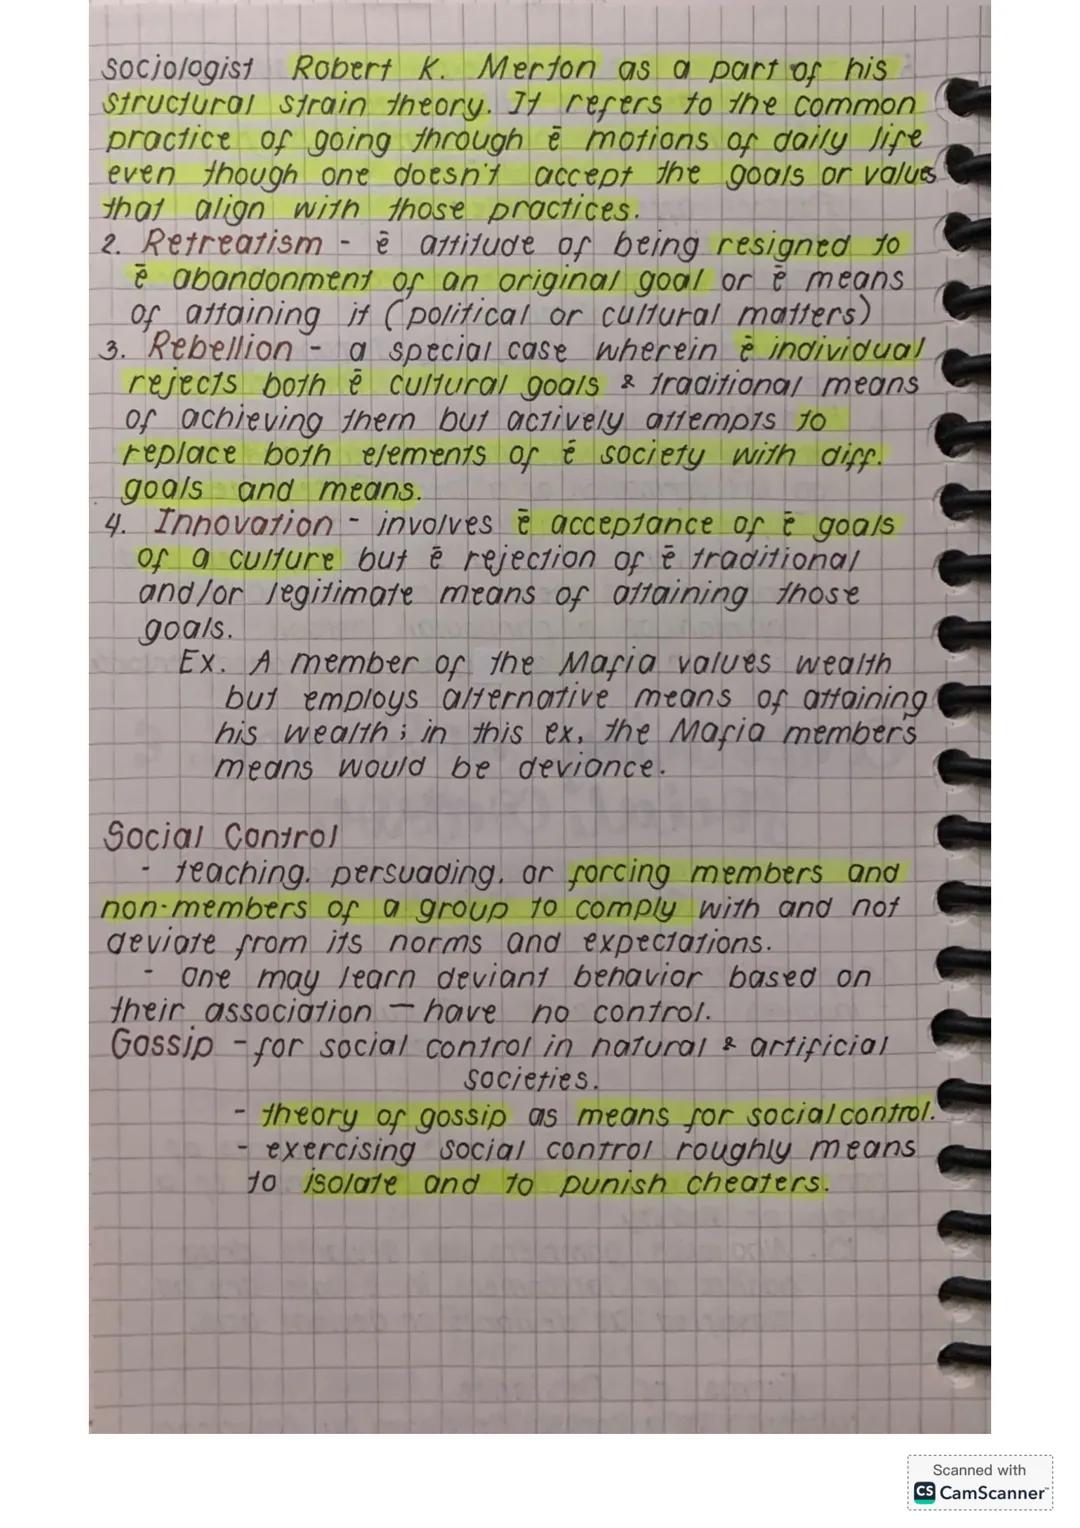 Sociologist Robert K. Merton as a part of his
structural strain theory. It refers to the common
practice of going through ē motions of daily life
even though one doesn't accept the goals or values
that align with those practices.
2. Retreatism - ē attitude of being resigned to
ē abandonment of an original goal or ē means
of attaining it (political or cultural matters)
3. Rebellion - a special case wherein ē individual
rejects both ē cultural goals & traditional means
of achieving them but actively attempts to
replace both elements of ē society with diff.
goals and means.
4. Innovation - involves ē acceptance of ē goals
of a culture but ē rejection of ē traditional
and/or legitimate means of attaining those
goals.
Ex. A member of the Mafia values wealth
but employs alternative means of attaining
his wealth; in this ex, the Mafia member's
means would be deviance.
Social Control
- teaching. persuading. or forcing members and
non-members of a group to comply with and not
deviate from its norms and expectations.
- one may learn deviant behavior based on
their association - have no control.
Gossip - for social control in natural & artificial
societies.
- theory of gossip as means for social control.
- exercising social control roughly means
to isolate and to punish cheaters.
Scanned with
CS CamScanner